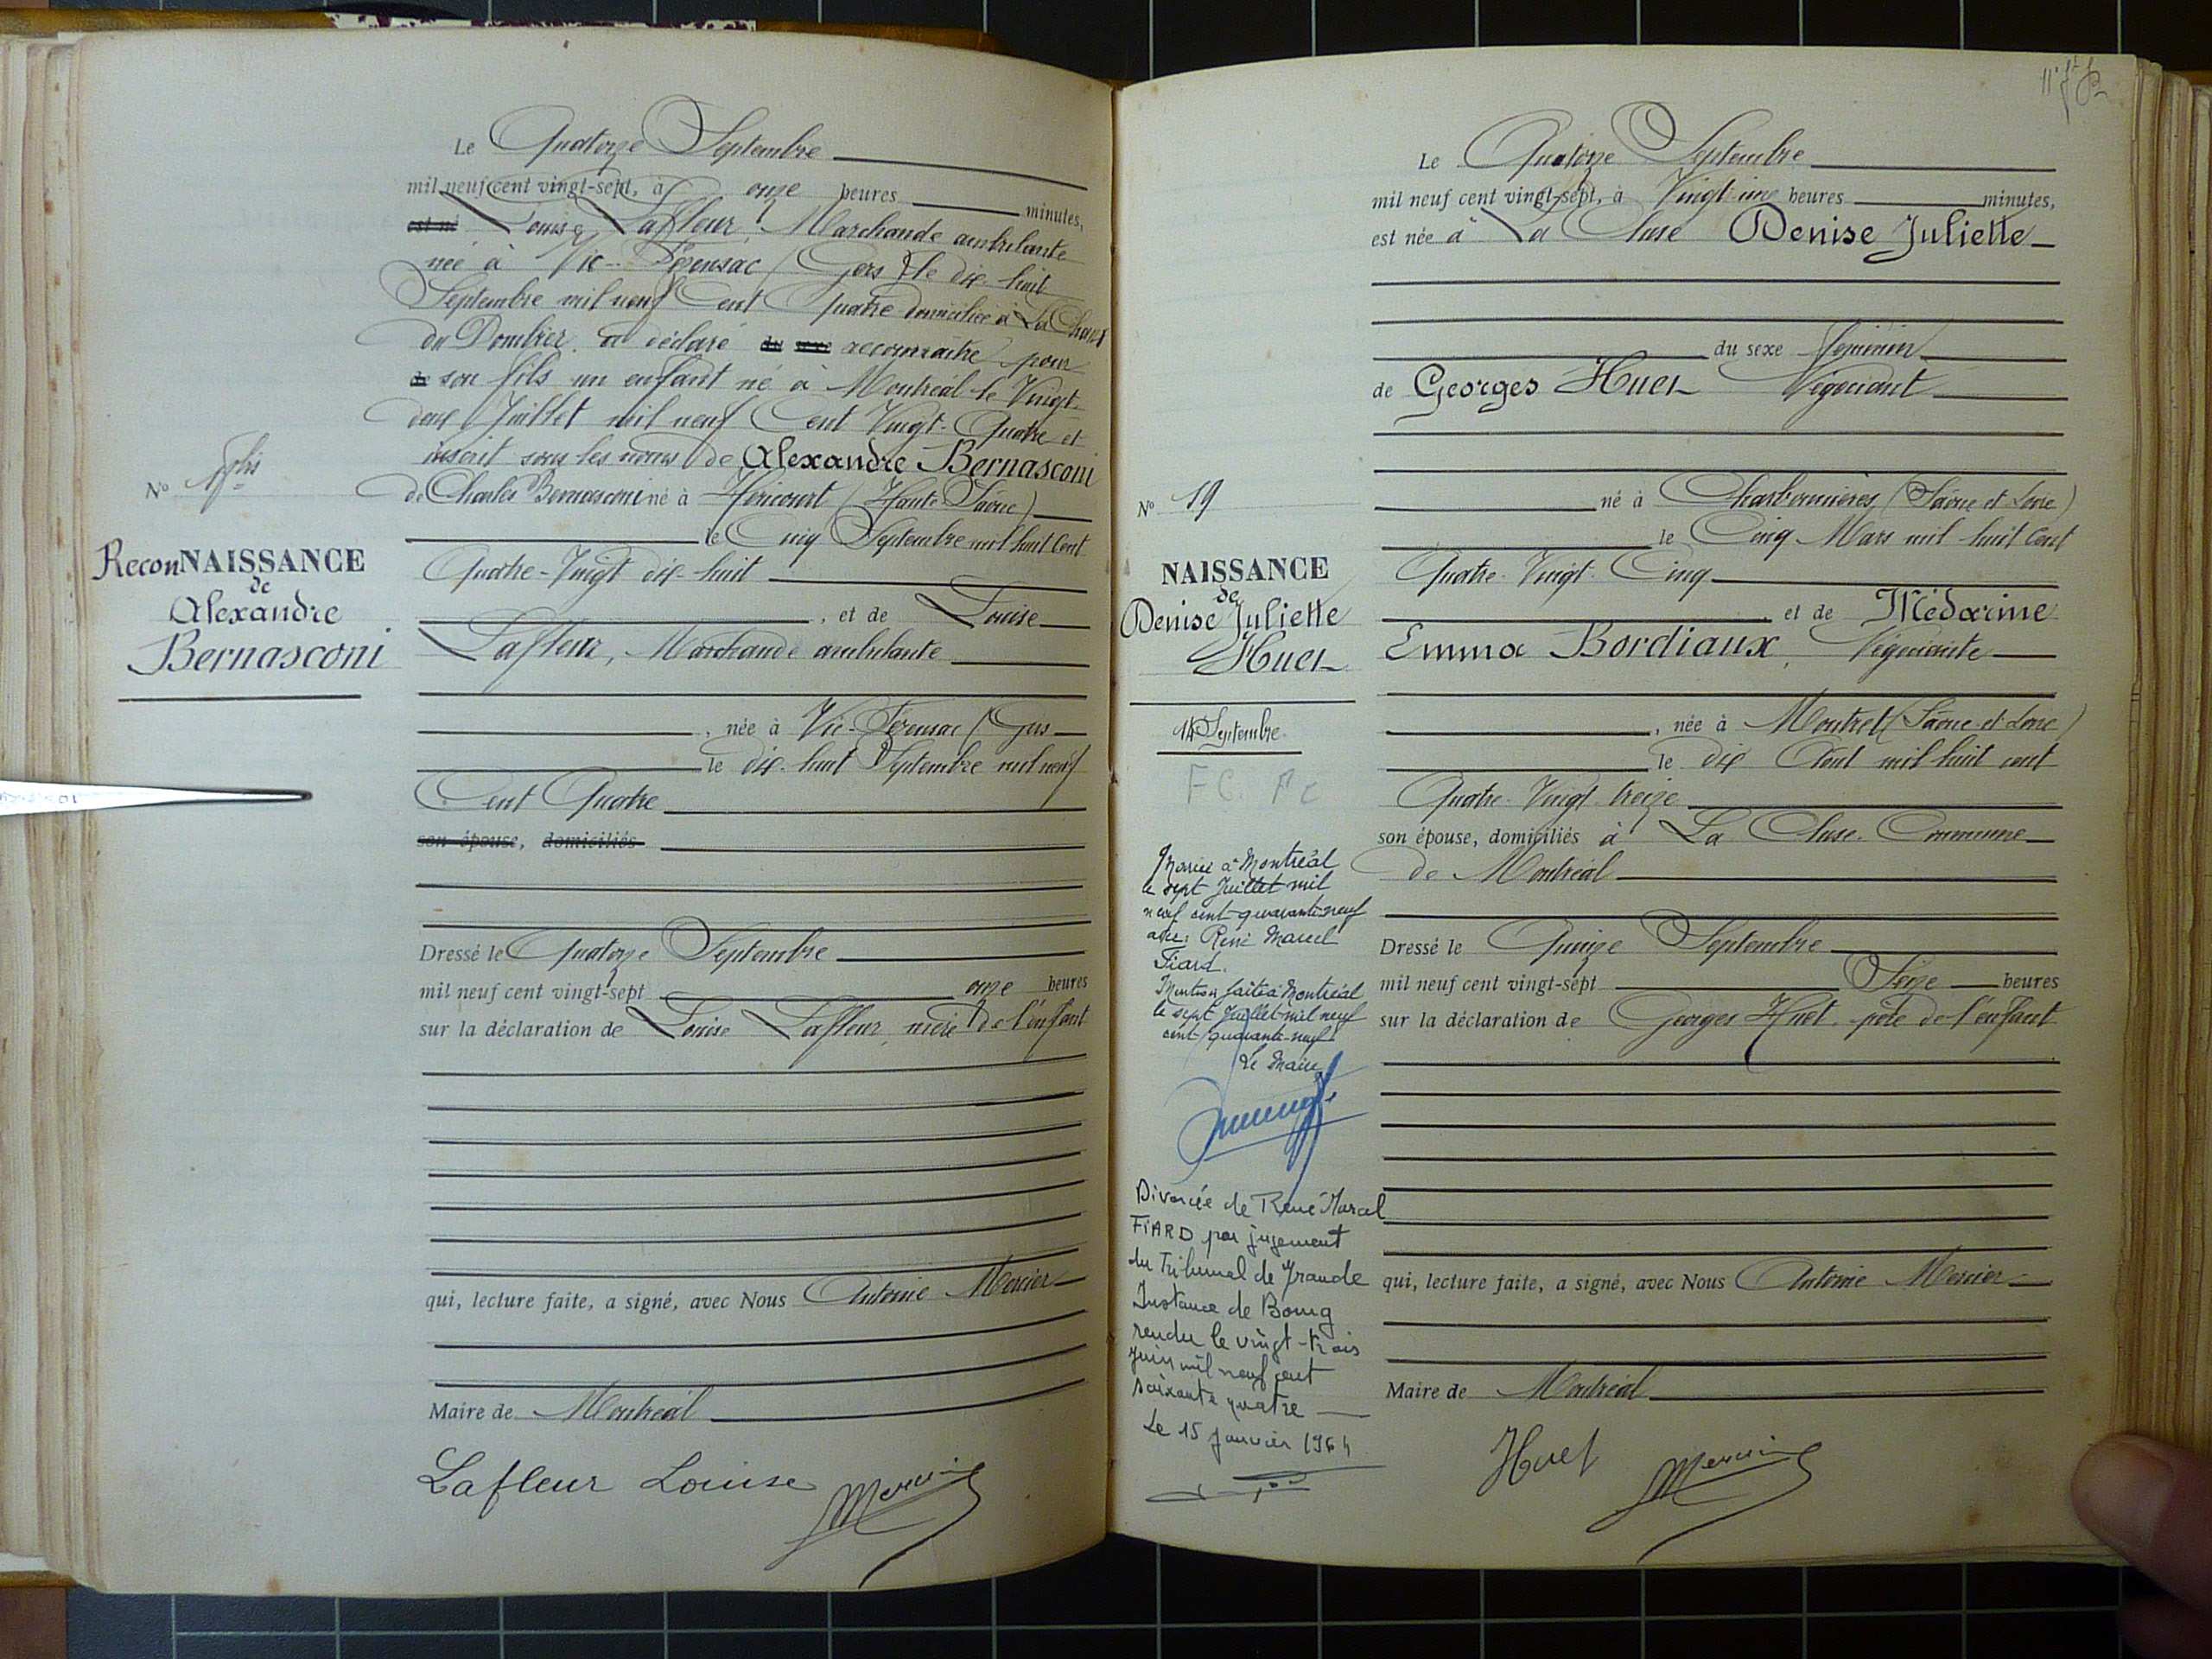 Le Quatorze Septembre
mil neuf cent vingt-sept, à onze heures minutes,
est né Louise Lafleur, Marchande ambulante
née à Vic-Fezensac (Gers) le dix-huit
Septembre mil neuf Cent Quatre domiciliée à La Chaux
du Dombier a déclaré du sexe reconnaître pour
de son fils un enfant né à Montréal le Vingt-
deux Juillet mil neuf Cent Vingt-Quatre et
inscrit sous les noms de Alexandre Bernasconi
de Charles Bernasconi né à Héricourt (Haute Saône)
le Cinq Septembre mil huit Cent
Quatre-Vingt dix-huit
, et de Louise
Lafleur, Marchande ambulante
, née à Vic-Fezensac (Gers
le dix-huit Septembre mil neuf
Cent Quatre
son épouse, domiciliés
Dressé le Quatorze Septembre
mil neuf cent vingt-sept onze heures
sur la déclaration de Louise Lafleur, mère de l'enfant
qui, lecture faite, a signé, avec Nous Antoine Mercier
Maire de Montréal
Lafleur Louise Mercier
No
ReconNAISSANCE
de
Alexandre
Bernasconi
Le Quatorze Septembre
mil neuf cent vingt-sept, à Vingt-une heures minutes,
est née à La Cluse Denise Juliette
du sexe féminin
de Georges Huet Négociant
né à Charbonnières (Saône et Loire)
le Cinq Mars mil huit Cent
Quatre-Vingt-Cinq
, et de Médarine
Emma Bordiaux, Négociante
, née à Montret (Saône-et-Loire)
le dix Aout mil huit cent
Quatre-Vingt-treize
son épouse, domiciliés à La Cluse-Commune
de Montréal
Dressé le Quinze Septembre
mil neuf cent vingt-sept Seize heures
sur la déclaration de Georges Huet père de l'enfant
qui, lecture faite, a signé, avec Nous Antoine Mercier
Maire de Montréal
Huet Mercier
No 19
NAISSANCE
de
Denise Juliette
Huet
14 Septembre
F C.
Mariée à Montréal
le sept Juillet mil
neuf cent quarante neuf
avec René Marcel
Fiard.
Mention faite à Montréal
le sept Juillet mil neuf
cent quarante-neuf
Le Maire
Divorcée de René Marcel
FIARD par jugement
du Tribunal de Grande
Instance de Bourg
rendu le vingt-trois
juin mil neuf cent
soixante quatre
Le 15 janvier 1964